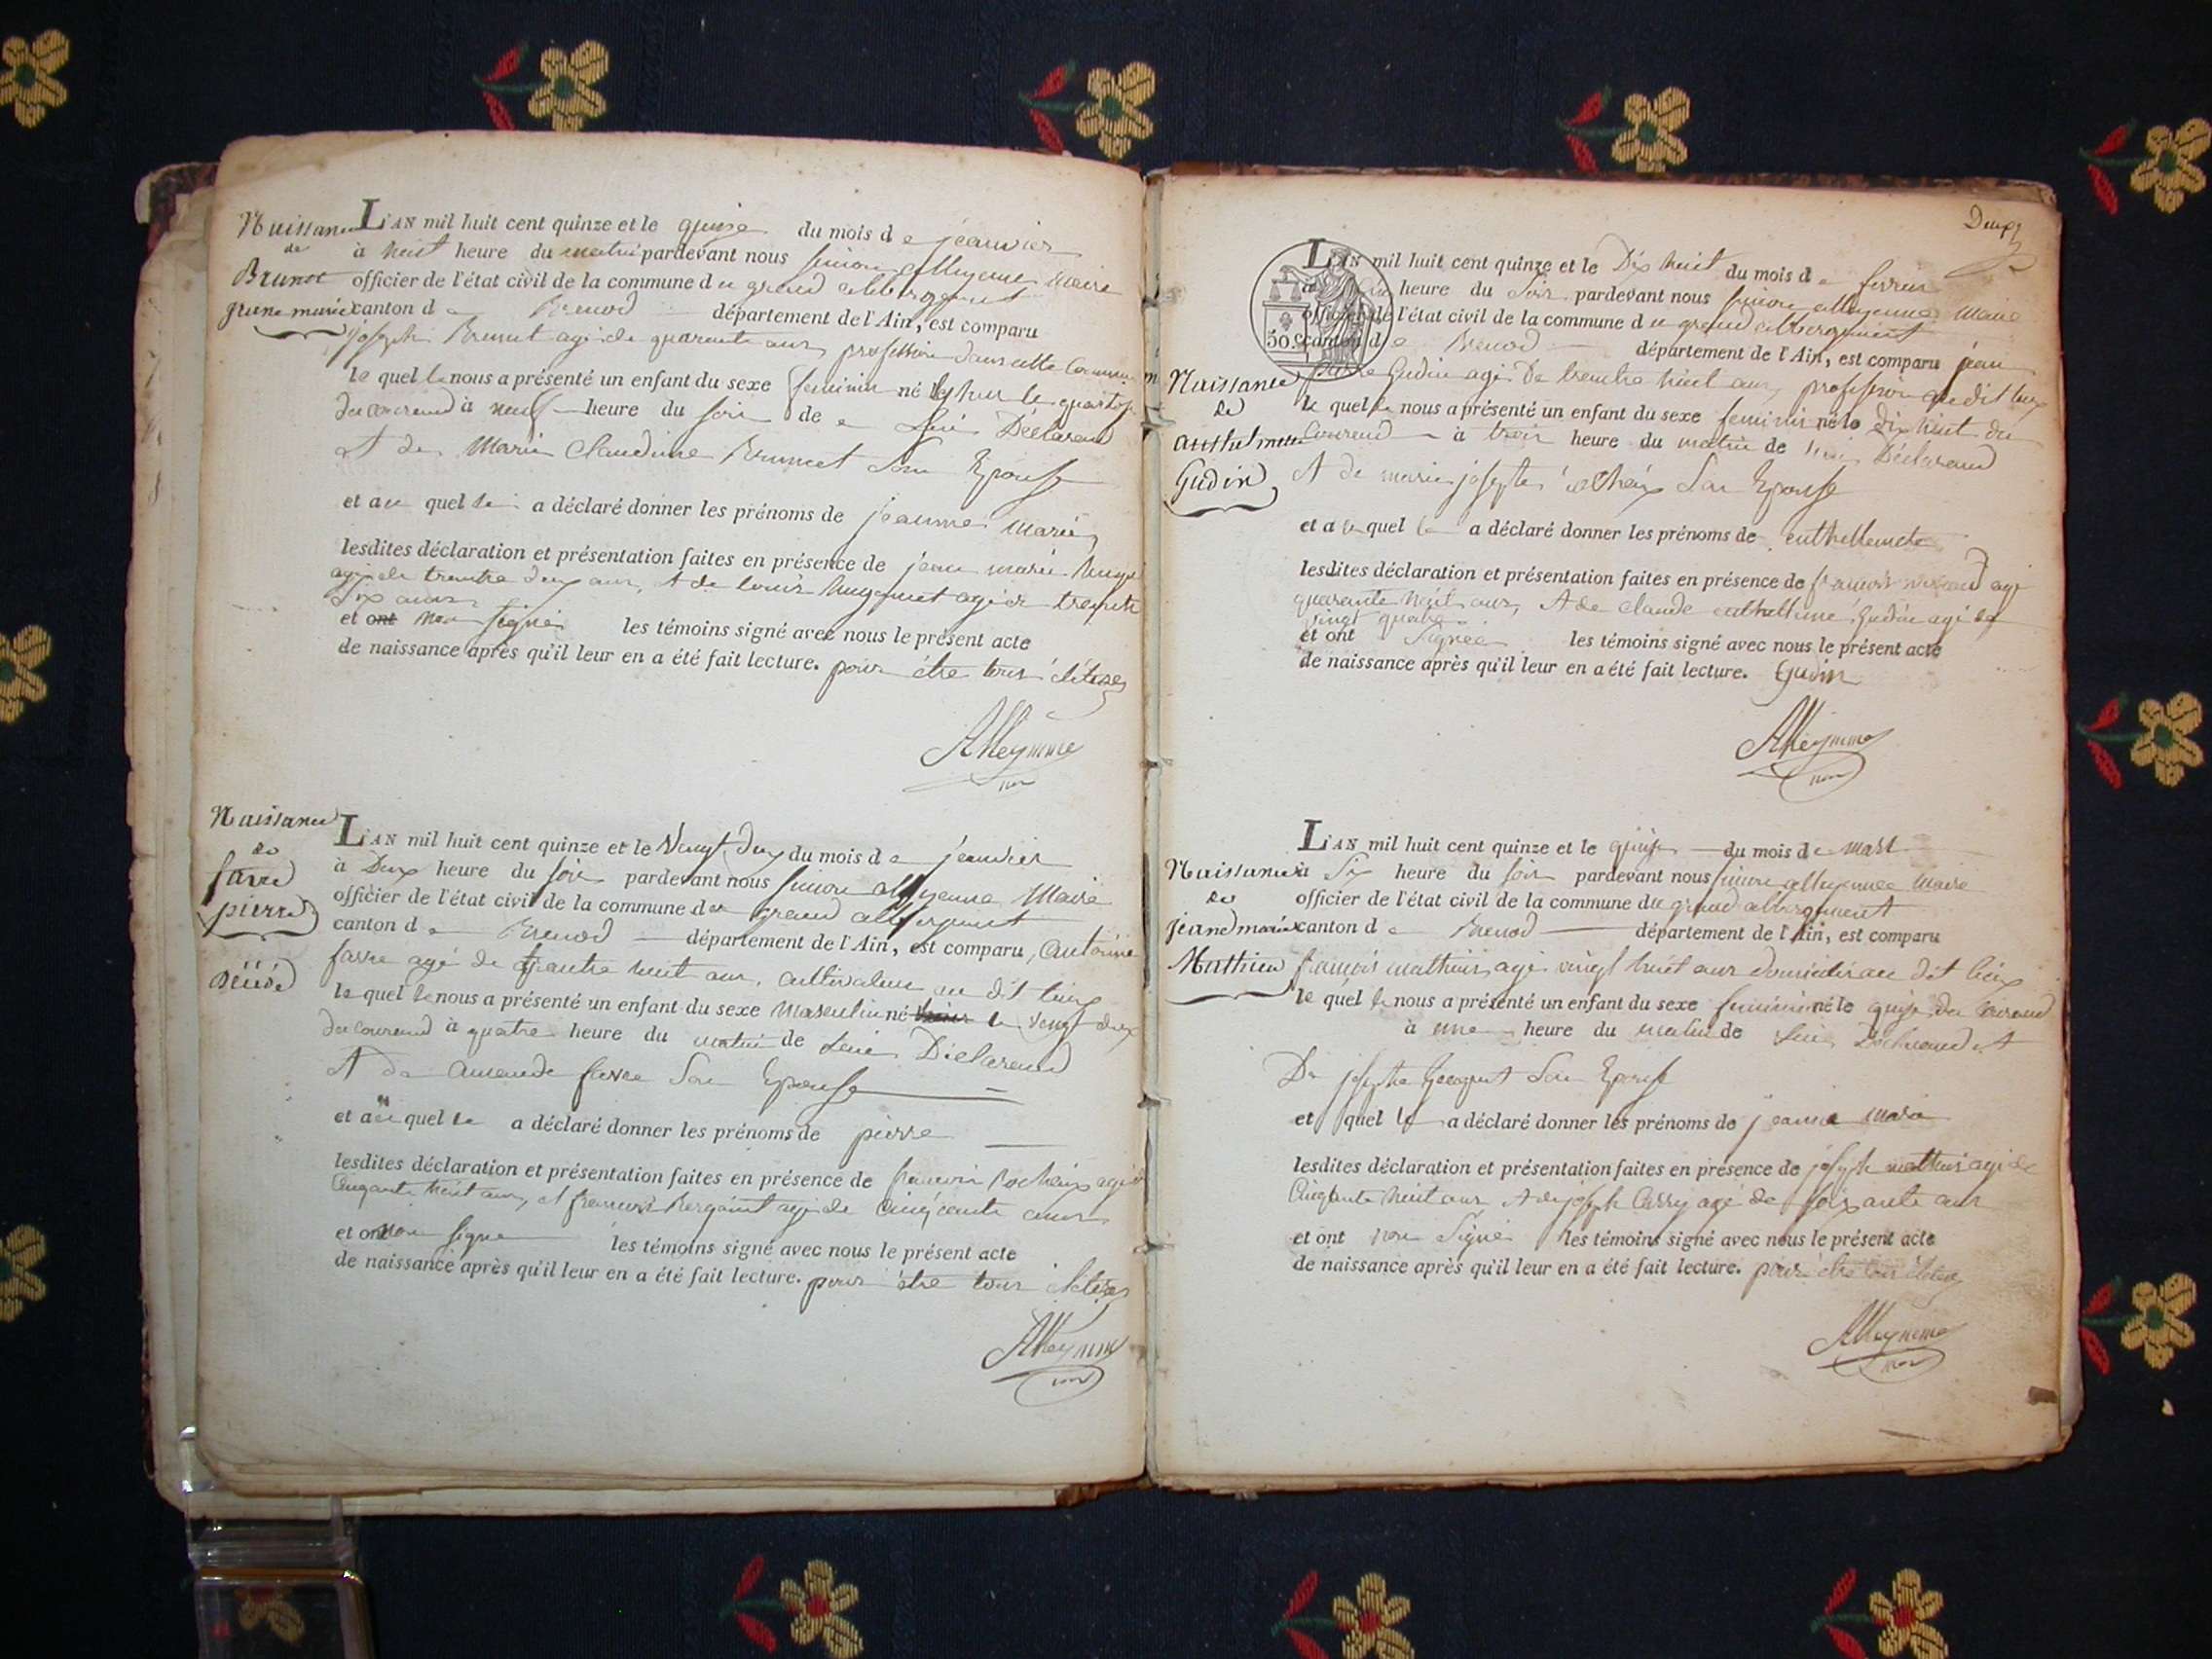 Naissance
de
Brunet
jeanne marie
L'AN mil huit cent quinze et le quinze du mois de jeanvier
à huit heure du matin pardevant nous simon alleymne Maire
officier de l'état civil de la commune du grand abbergement
canton de Brenod département de l'Ain, est comparu
joseph Brunet agé de quarente ans, profession dans cette Commune
le quel le nous a présenté un enfant du sexe feminin né le
du courend à neuf heure du soir de lui Déclarend
et de Marie Claudine Brunet Son Epouse
et au quel le a déclaré donner les prénoms de jeanne marie
lesdites déclaration et présentation faites en présence de jean marie
agé de trente deux ans, et de louis hugonnet agé de trente
six ans
et ont non signé les témoins signé avec nous le présent acte
de naissance après qu'il leur en a été fait lecture. pour étre tous
Alleymne
Naissance
de
favre
pierre
Décédé
L'AN mil huit cent quinze et le Vengt deux du mois de jeanvier
à Deux heure du soir pardevant nous simon alleymne Maire
officier de l'état civil de la commune du grand abbergement
canton de Brenod département de l'Ain, est comparu, Antoinne
favre agé de trante huit ans, cultivateur au dit lieux
le quel le nous a présenté un enfant du sexe Masculin né le vengt deux
du courend à quatre heure du matin de lui Déclarend
et de amende favre Son Epouse
et au quel le a déclaré donner les prénoms de pierre
lesdites déclaration et présentation faites en présence de francois Rocheix agé de
Cinquante huit ans, et francois agé de Cinquante ans
et ont non signé les témoins signé avec nous le présent acte
de naissance après qu'il leur en a été fait lecture. pour étre tous
Alleymne
Deux
50 C
Naissance
de
Gudin
L'AN mil huit cent quinze et le Dix huit du mois de fevrier
heure du Soir pardevant nous simon alleymne Maire
officier de l'état civil de la commune du grand abbergement
canton de Brenod département de l'Ain, est comparu jean
pierre Gudin agé De trentre huit ans, profession au dit lieux
le quel le nous a présenté un enfant du sexe feminin né le dix huit du
Courend à trois heure du matin de lui Déclarend
et de marie josephe Son Epouse
et a quel le a déclaré donner les prénoms de
lesdites déclaration et présentation faites en présence de francois agé
quarente huit ans, et de claude Gudin agé de
vingt quatre
et ont Signée les témoins signé avec nous le présent acte
de naissance après qu'il leur en a été fait lecture. Gudin
Alleymne
Naissance
de
jeanne marie
Mathieu
L'AN mil huit cent quinze et le quinze du mois de mars
à Six heure du soir pardevant nous simon alleymne Maire
officier de l'état civil de la commune du grand abbergement
canton de Brenod département de l'Ain, est comparu
francois mathieu agé vingt huit ans Domicilié au dit lieux
le quel le nous a présenté un enfant du sexe feminin né le quinze du Courend
à une heure du matin de lui Déclarend et
De josephe Son Epouse
et quel le a déclaré donner les prénoms de jeanne marie
lesdites déclaration et présentation faites en présence de joseph mathieu agé de
Cinquante huit ans et de joseph agé de soixante ans
et ont non Signé les témoins signé avec nous le présent acte
de naissance après qu'il leur en a été fait lecture. pour étre tous
Alleymne